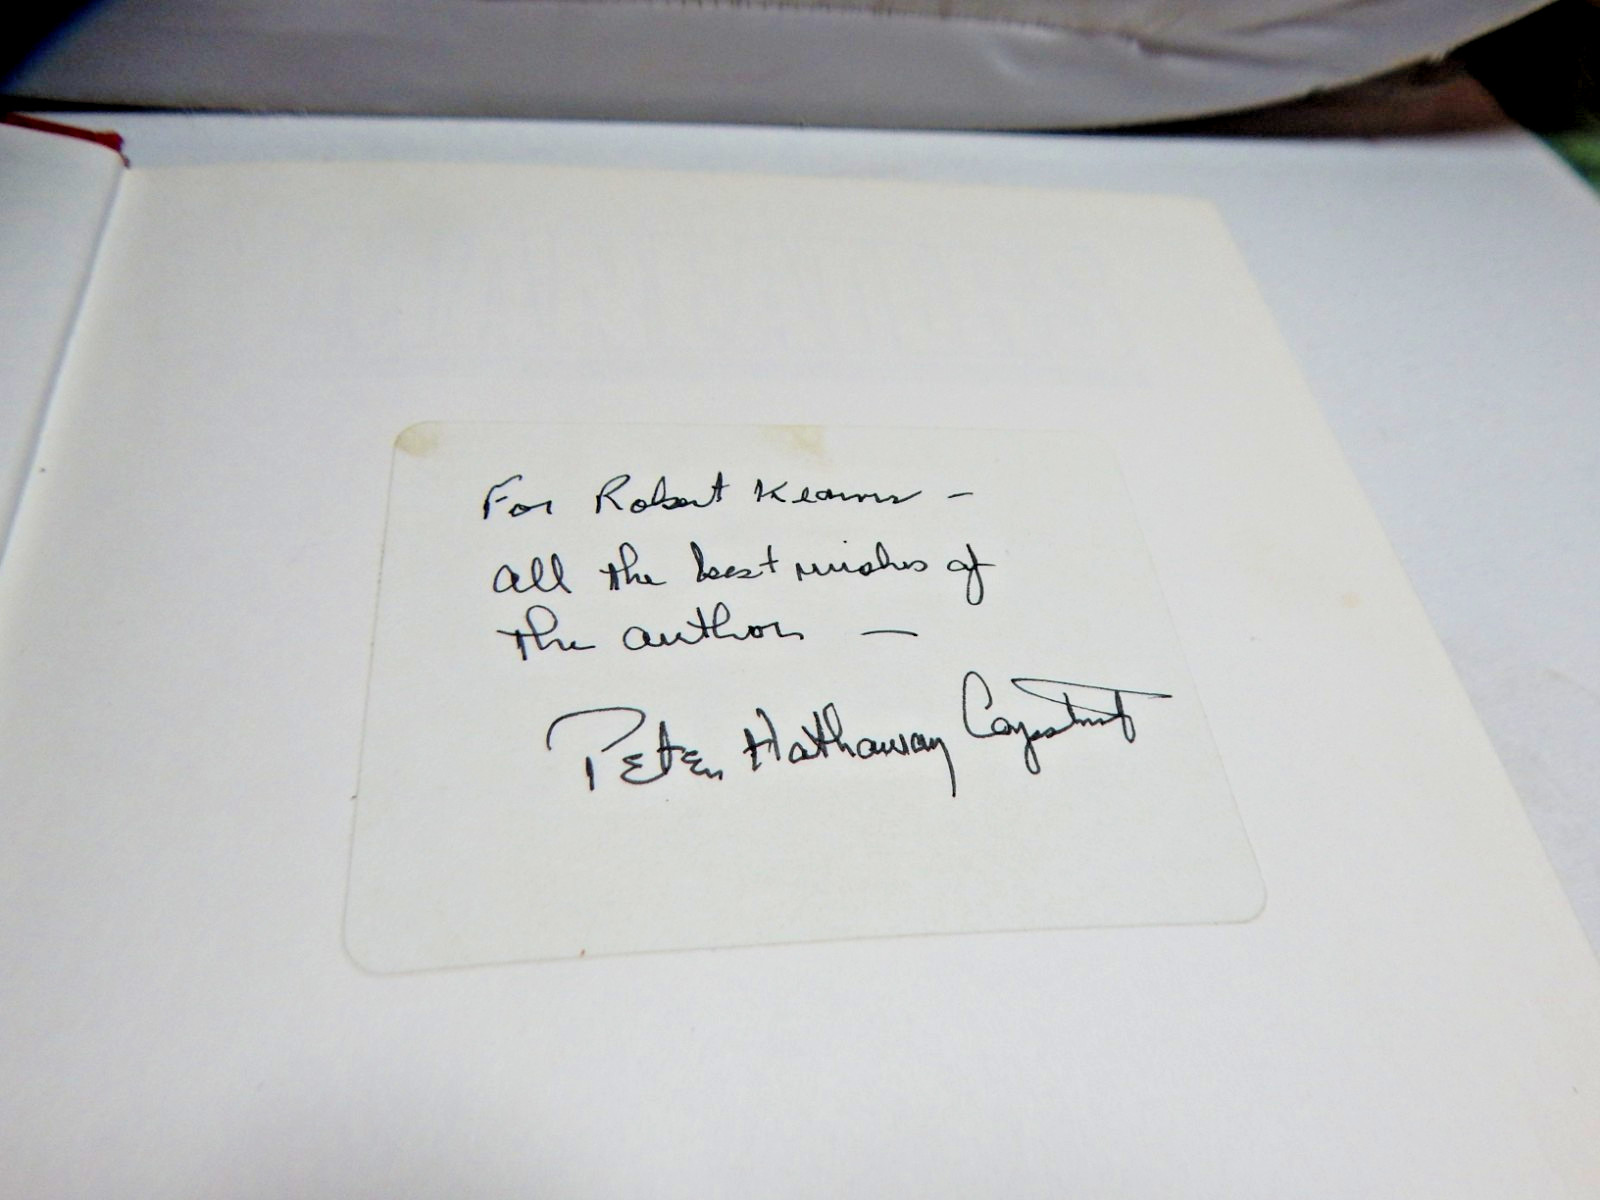 For Robert Kearns -
all the best wishes of
the author —
Peter Hathaway Capstick